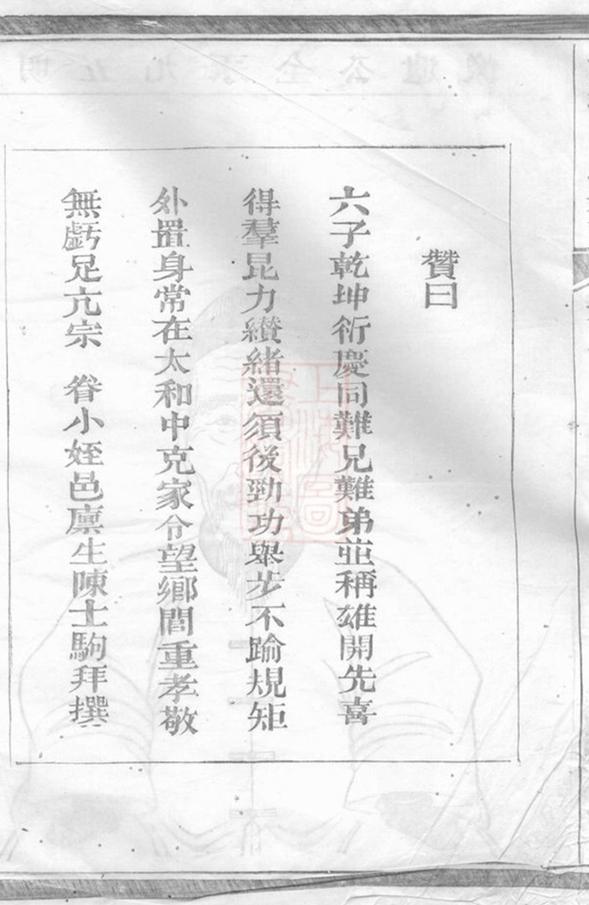 贊曰
六子乾坤衍慶同難兄難弟並稱雄開先喜
得羣昆力纉緒還須後勁功舉步不踰規矩
外置身常在太和中克家令望鄉閭重孝敬
無虧足亢宗　眷小姪邑廪生陳士駒拜撰